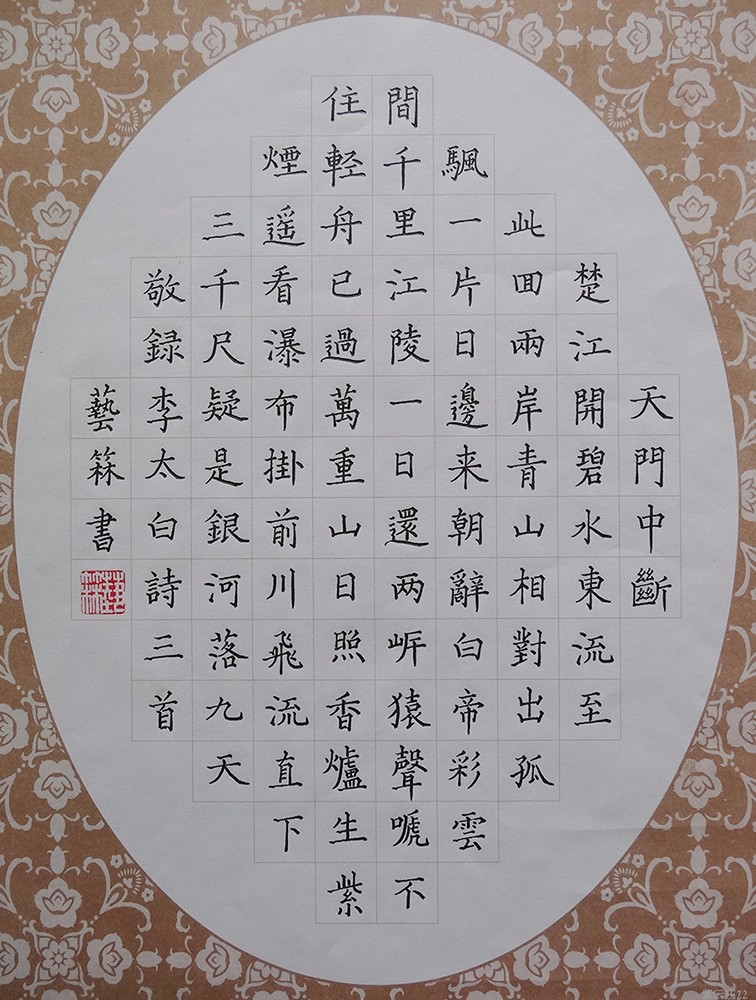 天門中斷
楚江開碧水東流至
此囬兩岸青山相對出孤
颿一片日邊来朝辭白帝彩雲
間千里江陵一日還两岍猿聲嗁不
住軽舟已過萬重山日照香爐生紫
煙遥看瀑布掛前川飛流直下
三千尺疑是銀河落九天
敬録李太白詩三首
藝箖書